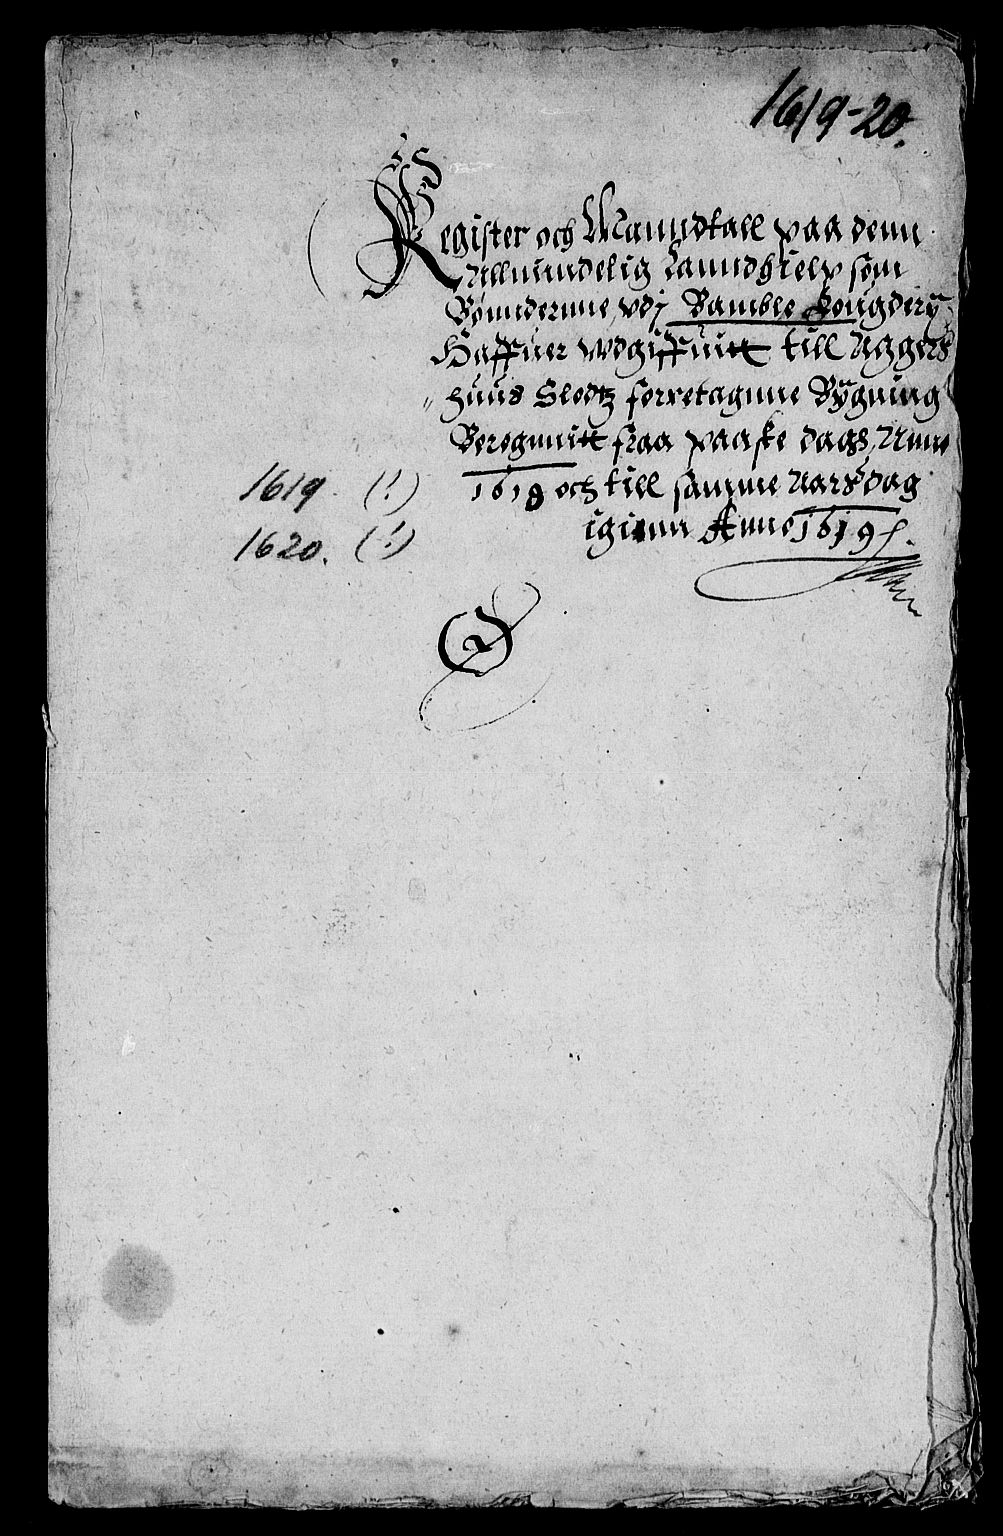 1619-20.
Register och Manndtall paa denn
Allmindelig Lanndhielp som
Bønndernne vdj Bamble Fougdery
Haffuer wdgiffuitt till Aggers
huus Slodtz forretagnne Bygning
Beregnnitt fraa paaske dags, Anno
1619. (!) 1618 och till samme Aarsdag
1620. (!) igienn Anno 1619